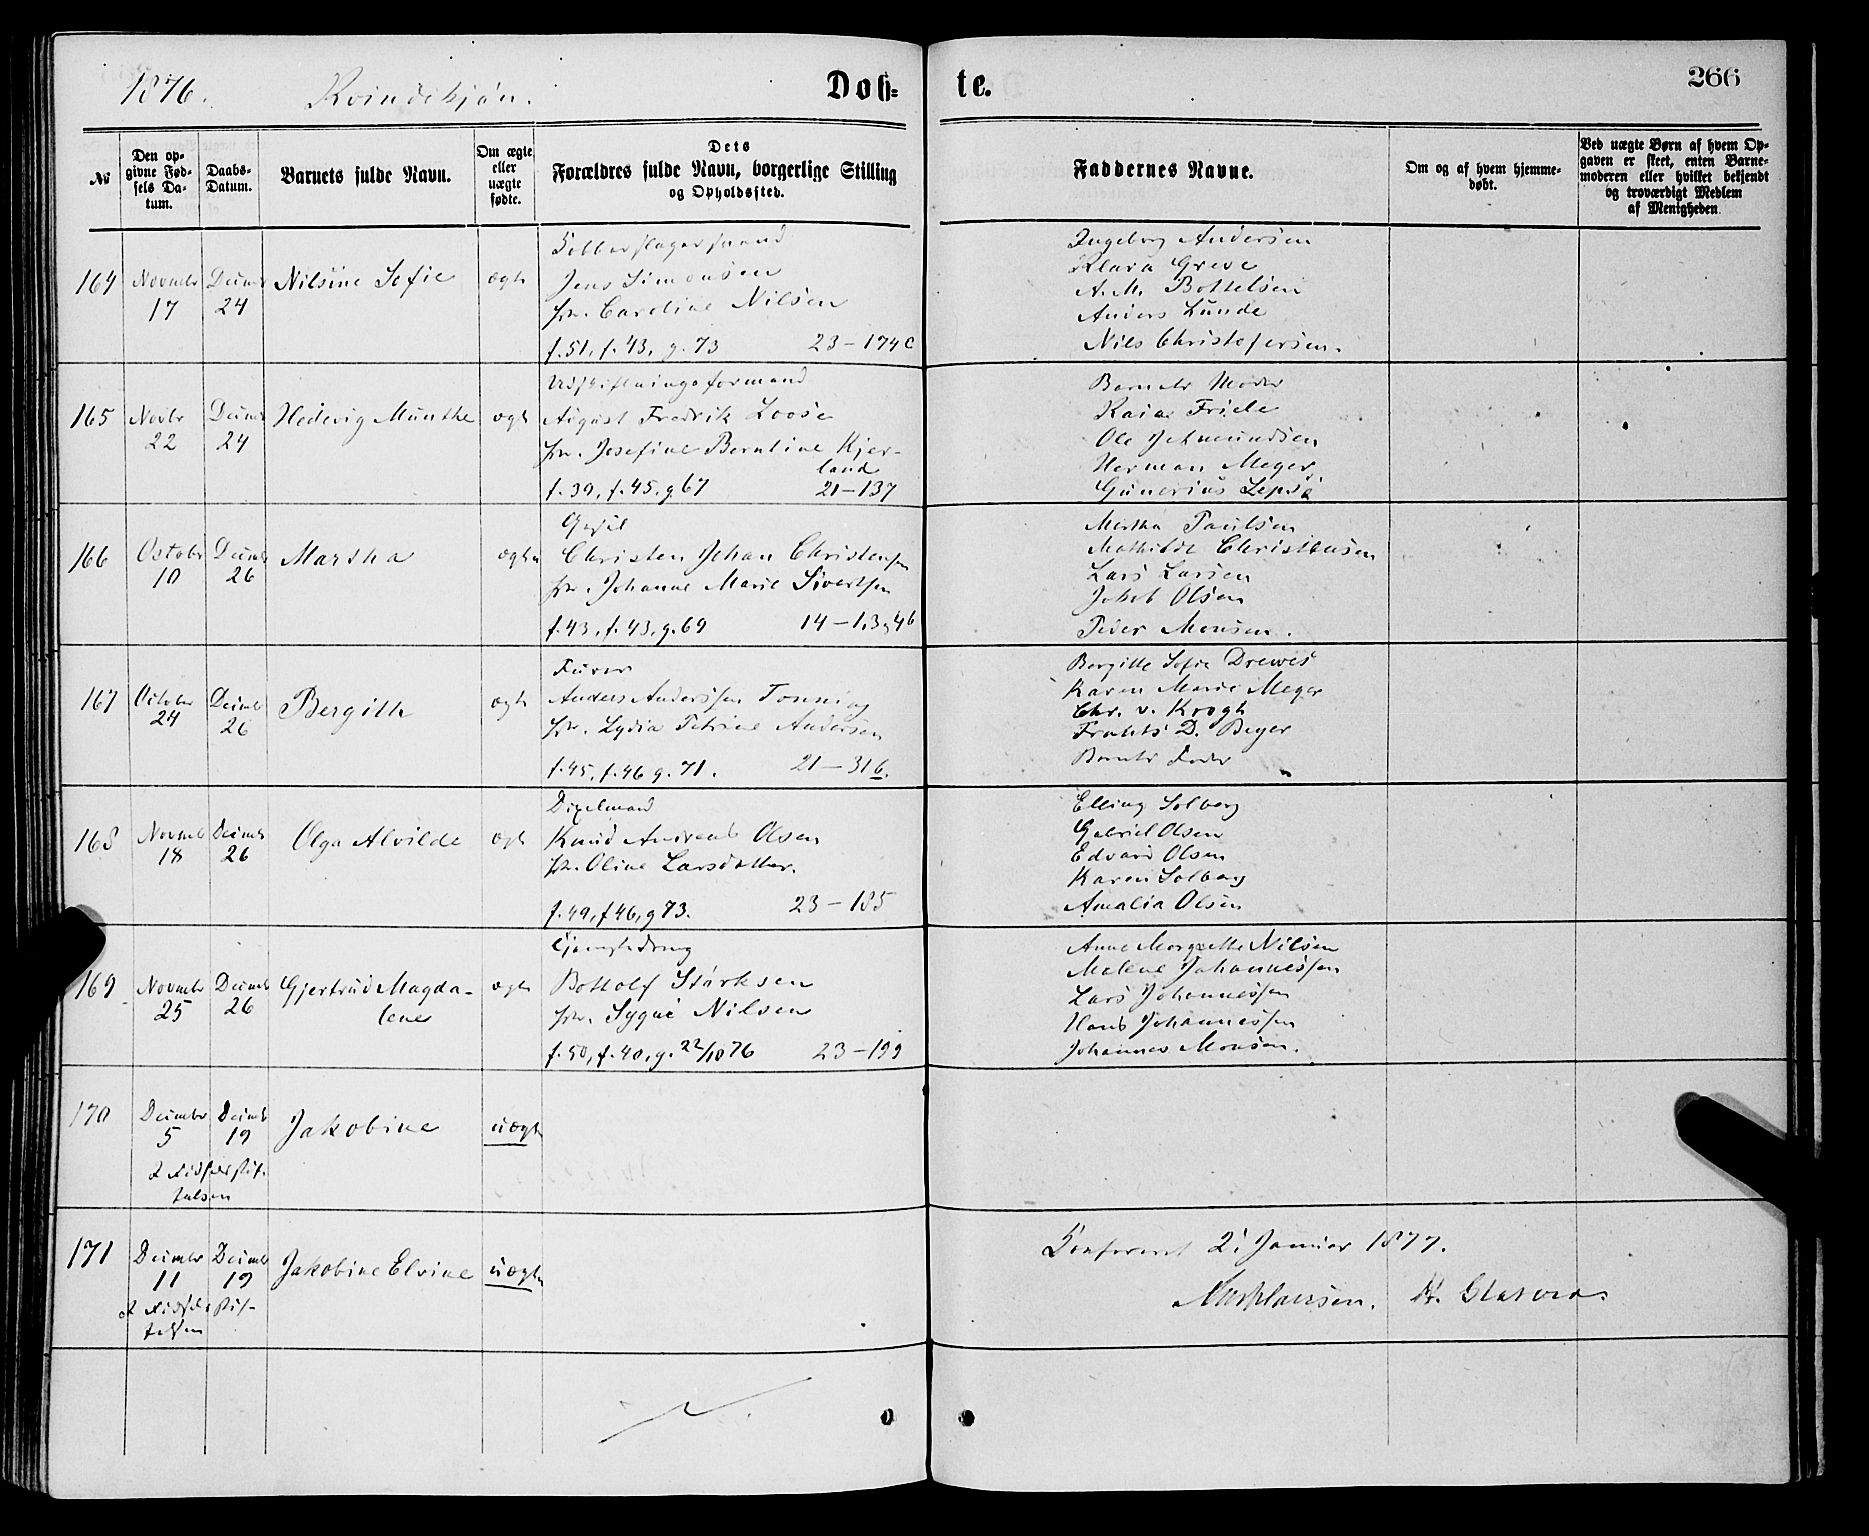 1876. Kvindekjøn. Døb= te. 266
№
Den op-
givne Fød-
sels Da-
tum.
Daabs-
Datum.
Barnets fulde Navn.
Om ægte
eller
uægte
fødte.
Dets
Forældres fulde Navn, borgerlige Stilling
og Opholdssted.
Faddernes Navne.
Om og af hvem hjemme-
døbt.
Ved uægte Børn af hvem Op-
gaven er skeet, enten Barne-
moderen eller hvilket bekjendt
og troværdigt Medlem
af Menigheden
164 Novmbr 17 Decmbr 24 Nilsine Sofie ægte
Kobberslagersvend
Jens Simonsen
Caroline Nilsen
f. 51, f. 43, g. 73 23 – 174c
Ingeborg Andersen
Klara Greve
A. M. Bottelsen
Anders Lunde
Nils Christofersen.
165 Novbr 22 Decmbr 24 Hedevig Munthe ægte
Udskiftningsformand
August Fredrik Loose
Josefine Berntine Kjer-
land
f. 39, f. 45, g 67 21 – 137
Barnets Moder
Kaia Friele
Ole
Herman Meyer
Gunerius Lepsø
166 Octobr 10 Decmbr 26 Martha ægte
Christen Johan Christensen
Johanne Marie Sivertsen
f. 43, f. 43, g. 69 14 – 1,3, 46
Martha Paulsen
Mathilde Christensen
Lars Larsen
Jakob Olsen
Peder Monsen.
167 October 24 Decmbr 26 Bergithe ægte
Furer
Anders Anderssen Tonning
Lydia Petrine Andersen
f. 45, f. 46 g. 71. 21 – 316.
Bergitte Sofie Drewes
Karen Marie Meyer
Chr. v. Krogh
Frants D. Beyer
Barnets Fader
168 Novmbr 18 Decmbr 26 Olga Alvilde ægte
Dixelmand
Knud Andreas Olsen
Oline Larsdatter.
f. 49, f 46, g 73. 23 – 185
Elling Solberg
Gabriel Olsen
Edvard Olsen
Karen Solberg
Amalia Olsen
169 Novmbr 25 Decmbr 26 Gjertrud Magda-
lene ægte
Bottolf Størksen
Sygni Nilsen
f. 50, f. 40, g. 22/10 76 23 – 199
Anne Margrethe Nilsen
Malene Johannessen
Lars Johannessen
Hans Johannessen
Johannes Monsen.
170 Decmbr 5 Decmbr 19 Jakobine uægte
171 Decmbr 11 Decmbr 19 Jakobine Elvine uægte
Konfereret 2 Januar 1877.